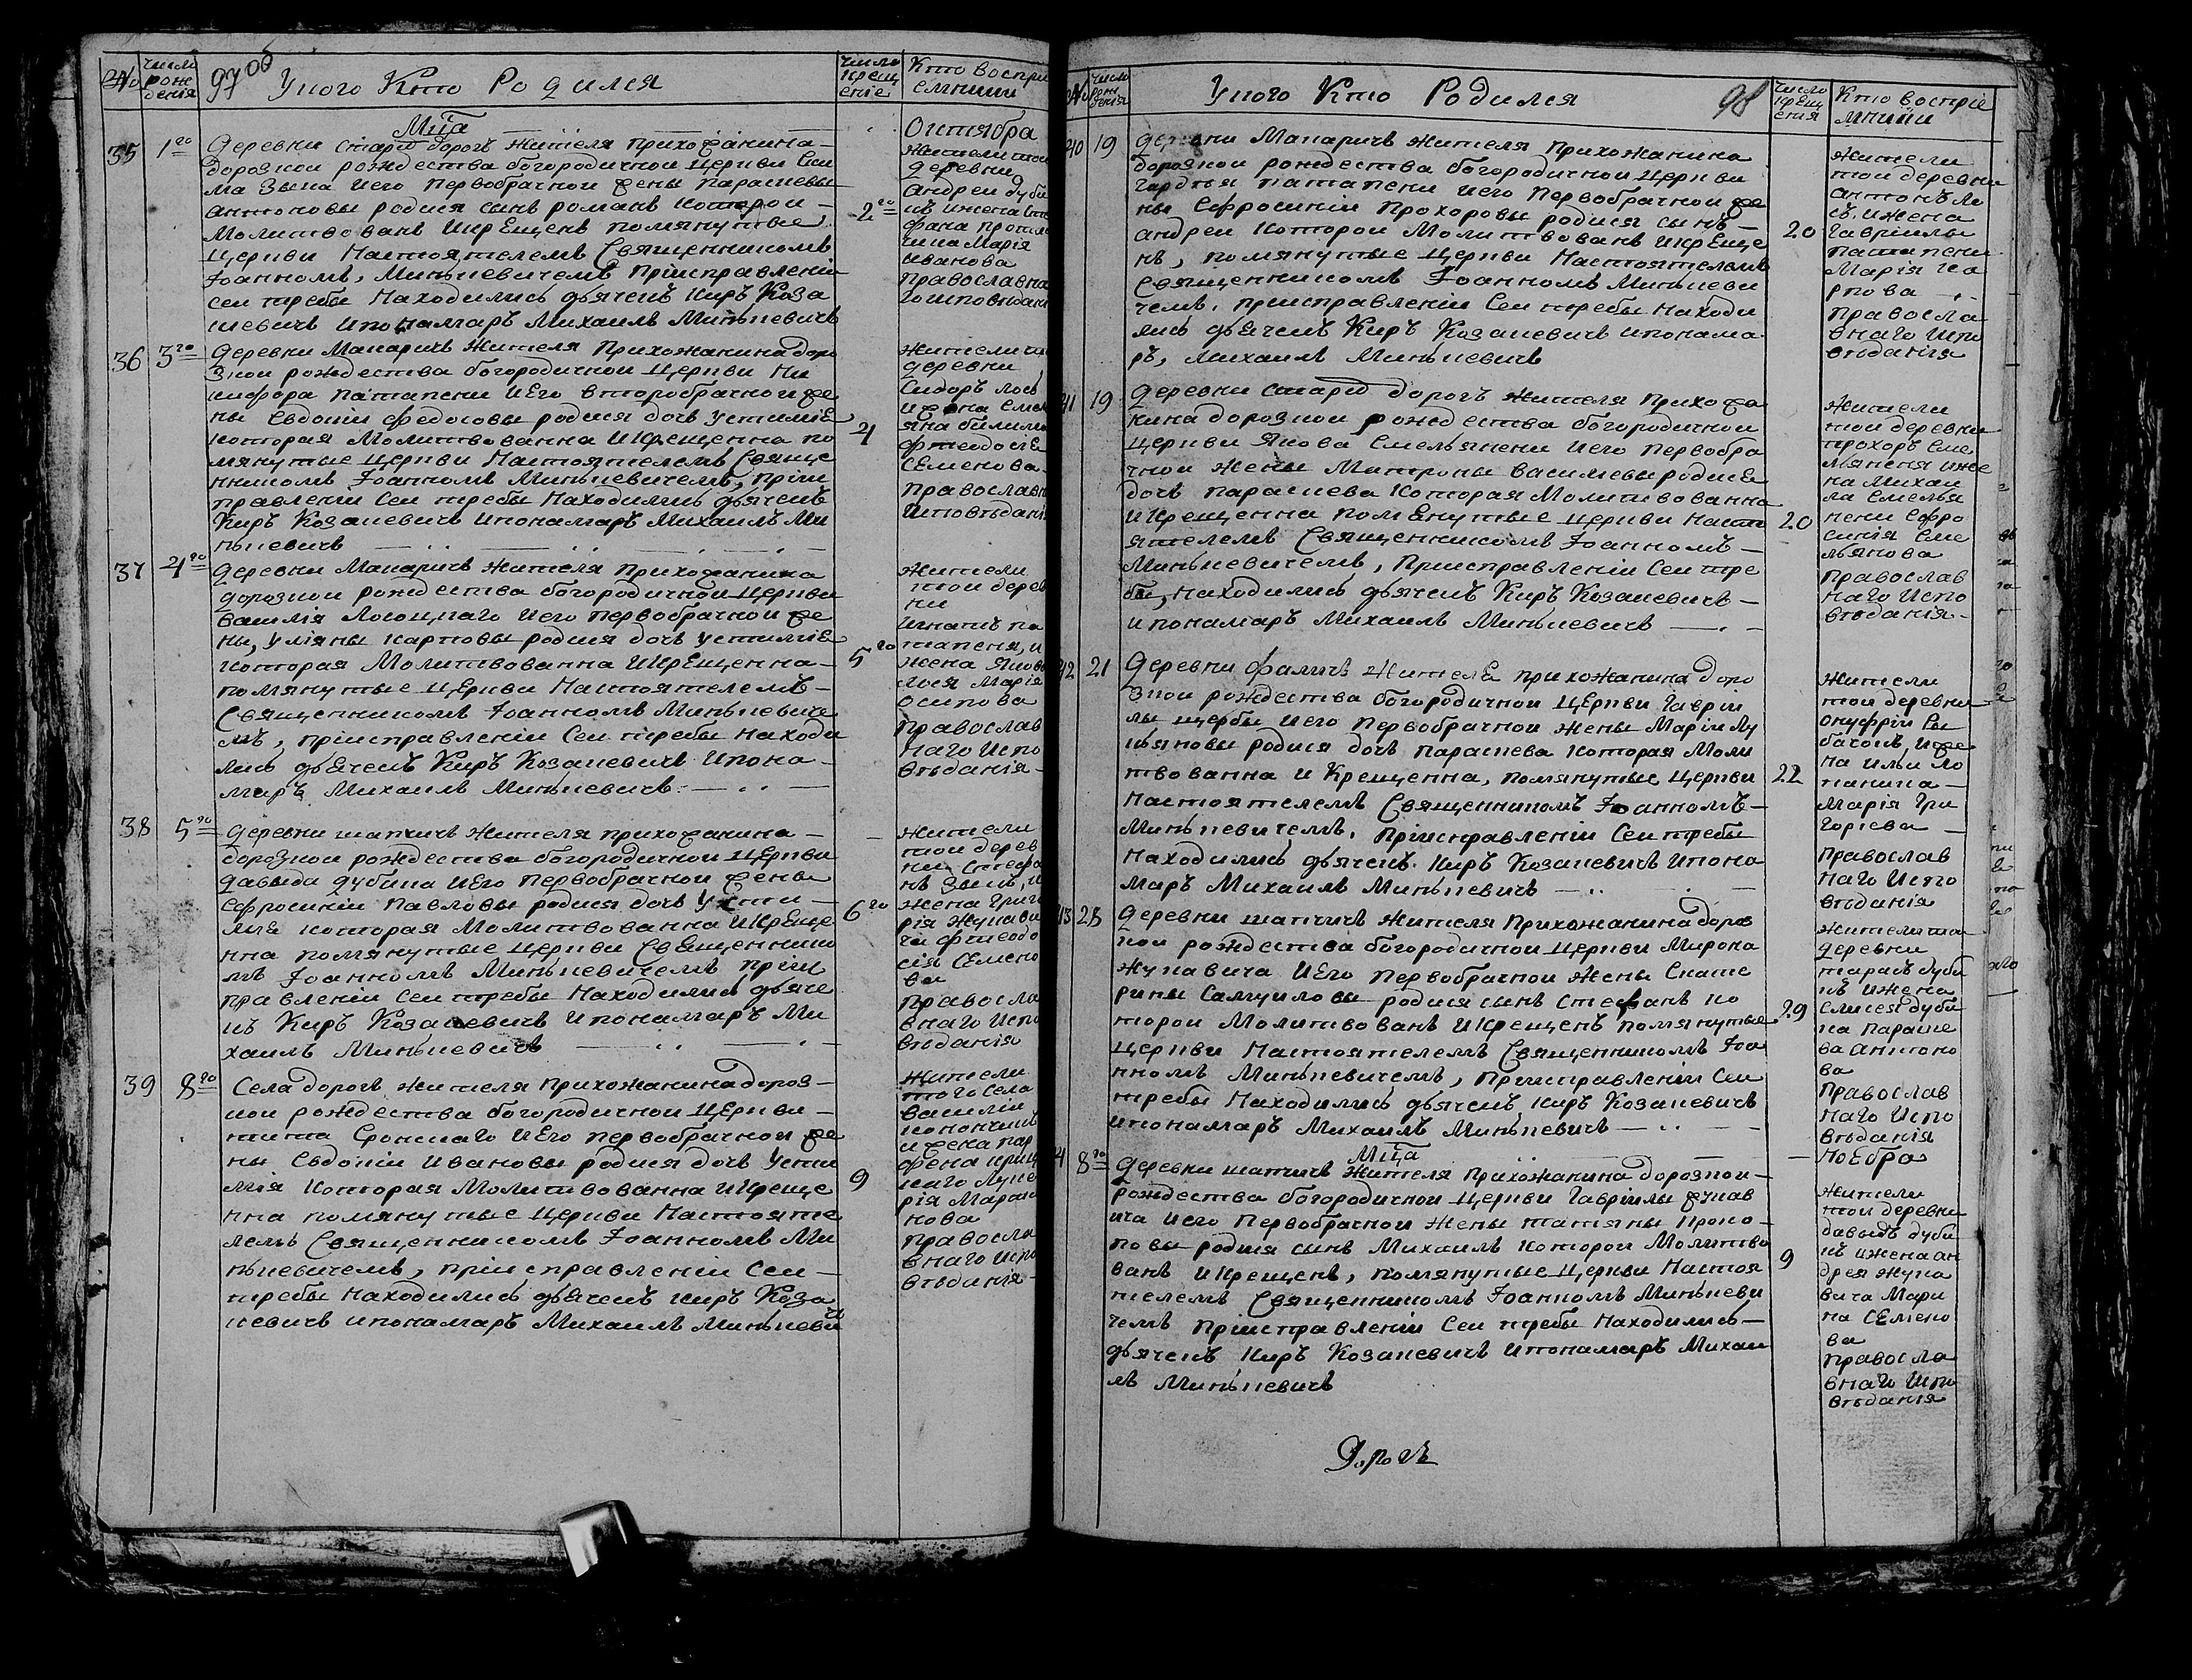 № число рожденія 97 об Укого Кто Родился число крещеніе Кто воспріемники
Мца Октября
35 1го деревни стари дорогъ жителя прихожанина
дорозкой рождества богородичной церкви Яки
ма Зыка иего первобрачной жены парасковы
антоновы родися сынъ романъ которой
Молитвованъ икрещенъ помянутые
церкви Настоятелемъ Священникомъ
Іоанномъ, Минкевичемъ приисправленіи
сеи требы Находились дьячекъ Киръ Коза
кевичъ ипонамаръ Михаилъ Минкевичъ
2го
жители тои
деревни
андреи дуби
къ ижена сте
фана
Марія
иванова
православна
го исповѣдан
36 3го деревни Макаричъ жителя Прихожанина доро
зкои рождества богородичной Церкви Ни
кифора патапени иего второбрачной же
ны Евдокіи федосовы родися дочь устиміе
которая Молитвованна икрещенна по
мянутые церкви Настоятелемъ Свяще
нникомъ Іоанномъ Минкевичемъ, приис
правленіи Сеи требы Находились дьячекъ
Киръ Козакевичъ ипонамаръ Михаилъ Ми
нкевичъ
4
жители тои
деревни
Сидоръ лось
ижена Емел
яна
фтеодосіе
Семенова
православн
исповѣдані
37 4го деревни Макаричъ жителя прихожанина
дорозкои рождества богородичной церкви
василія Лосоцкаго иего первобрачной же
ны, уліяны карповы родися дочь устиміе
которая Молитвованна икрещенна
помянутые церкви Настоятелемъ
Священникомъ Іоанномъ Минкевиче
мъ, приисправленіи Сеи требы находи
лись дьячекъ Киръ Козакевичъ ипона
маръ Михаилъ Минкевичъ
5го
жители
тои дерев
ни
игнатъ па
тапеня, и
жена Якова
лося Марія
осипова
православ
наго испо
вѣданія
38 5го деревни шапчичъ жителя прихожанина
дорозкои рождества богородичной церкви
давыда дубика иего первобрачной жены
Ефросиніи павловы родися дочь усти
мія которая Молитвованна икреще
нна помянутые церкви Священнико
мъ Іоанномъ Минкевичемъ приис
правленіи сеи требы Находились дьяче
къ Киръ Козакевичъ ипонамаръ Ми
хаилъ Минкевичъ
6го
жители
тои дерев
ни Стефа
нъ Зыкъ, и
жена григо
рія жукави
ча фтеодо
сія Семено
ва
правосла
внаго испо
вѣданія
39 8го Села дорогъ жителя прихожанина дороз
кои рождества богородичной церкви
тита Сронскаго иего первобрачной же
ны Евдокіи ивановы родися дочь усти
мія которая Молитвованна икреще
нна помянутые церкви Настояте
лемъ Священникомъ Іоанномъ Ми
нкевичемъ, приисправленіи Сеи
требы Находились дьячекъ киръ Коза
кевичъ ипонамаръ Михаилъ Минкевичъ
9
жители
того села
василіи
ижена пар
фена
скаго луке
рія Марти
нова
правосла
внаго испо
вѣданія
№ число рожденія Укого Кто Родился 98 число крещенія Кто воспріемники
40 19 деревни Макаричъ жителя прихожанина
дорозкои рождества богородичной церкви
гардѣя патапени иего первобрачной же
ны Ефросиніи Прохоровы родися сынъ
андреи которои Молитвованъ икреще
нъ, помянутые церкви Настоятелемъ
Священникомъ Іоанномъ Минкеви
чемъ, приисправленіи Сеи требы Находи
лись дьячекъ Киръ Козакевичъ ипонама
ръ, михаилъ Минкевичъ
20
жители
тои деревни
антонъ ло
сь. ижена
гавріилы
патапени
Марія ка
рпова
правосла
внаго испо
вѣданія
41 19 деревни стари дорогъ жителя прихожа
нина дорозкои рождества богородичнои
церкви Якова Емельянени иего первобра
чнои жены Матроны васильевы родися
дочь парасцева Которая Молитвованна
икрещенна помянутые церкви Насто
ятелемъ Священникомъ Іоанномъ
Минкевичемъ, приисправленіи Сеи тре
бы, находились дьячекъ Киръ Козакевичъ
ипонамаръ Михаилъ Минкевичъ
20
жители
тои деревни
прохоръ Еме
льяненя иже
на михаи
ла Емелья
нени Ефро
синія Еме
льянова
православ
наго испо
вѣданія
42 21 деревни фаличъ жителя прихожанина доро
зкои рождества богородичнои церкви гавріи
лы щербы иего первобрачнои жены Маріи лу
кьяновы родися дочь парасцева которая Моли
твованна и Крещенна, помянутые церкви
Настоятелемъ Священникомъ Іоанномъ
Минкевичемъ, приисправленіи Сеи требы
находились дьячекъ Киръ Козакевичъ ипона
маръ Михаилъ Минкевичъ
22
жители
тои деревни
онуфріи Ры
бачокъ, иже
на ильи ло
панина
Марія гри
горіева
православ
наго испо
вѣданія
43 28 деревни шапчичъ жителя Прихожанина дороз
кои рождества богородичнои церкви Мирона
жукавича иего первобрачнои жены Екате
рины Самуиловы родися сынъ стефанъ ко
торои Молитвованъ икрещенъ помянутые
церкви Настоятелемъ Священникомъ Іоа
нномъ Минкевичемъ, приисправленіи Сеи
требы Находились дьячекъ, киръ Козакевичъ
ипонамаръ Михаилъ Минкевичъ
29
жители тои
деревни
тарасъ дуби
къ ижена
Елисея дуби
ка параске
ва антоно
ва
православ
наго испо
вѣданія
Мца Ноебра
44 8го деревни шапчичъ жителя прихожанина дорозкои
рождества богородичнои церкви гавріилы жукав
ича иего первобрачнои жены татяны проко
повы родися сынъ Михаилъ которои Молитво
ванъ икрещенъ, помянутые церкви Настоя
телемъ Священникомъ Іоанномъ Минкеви
чемъ приисправленіи Сеи требы Находились
дьячекъ Киръ Козакевичъ ипонамаръ Михаи
лъ Минкевичъ
9
жители
тои деревни
давыдъ дуби
къ ижена ан
дрея жука
вича Мари
на Семено
ва
правосла
внаго испо
вѣданія
Дорогъ